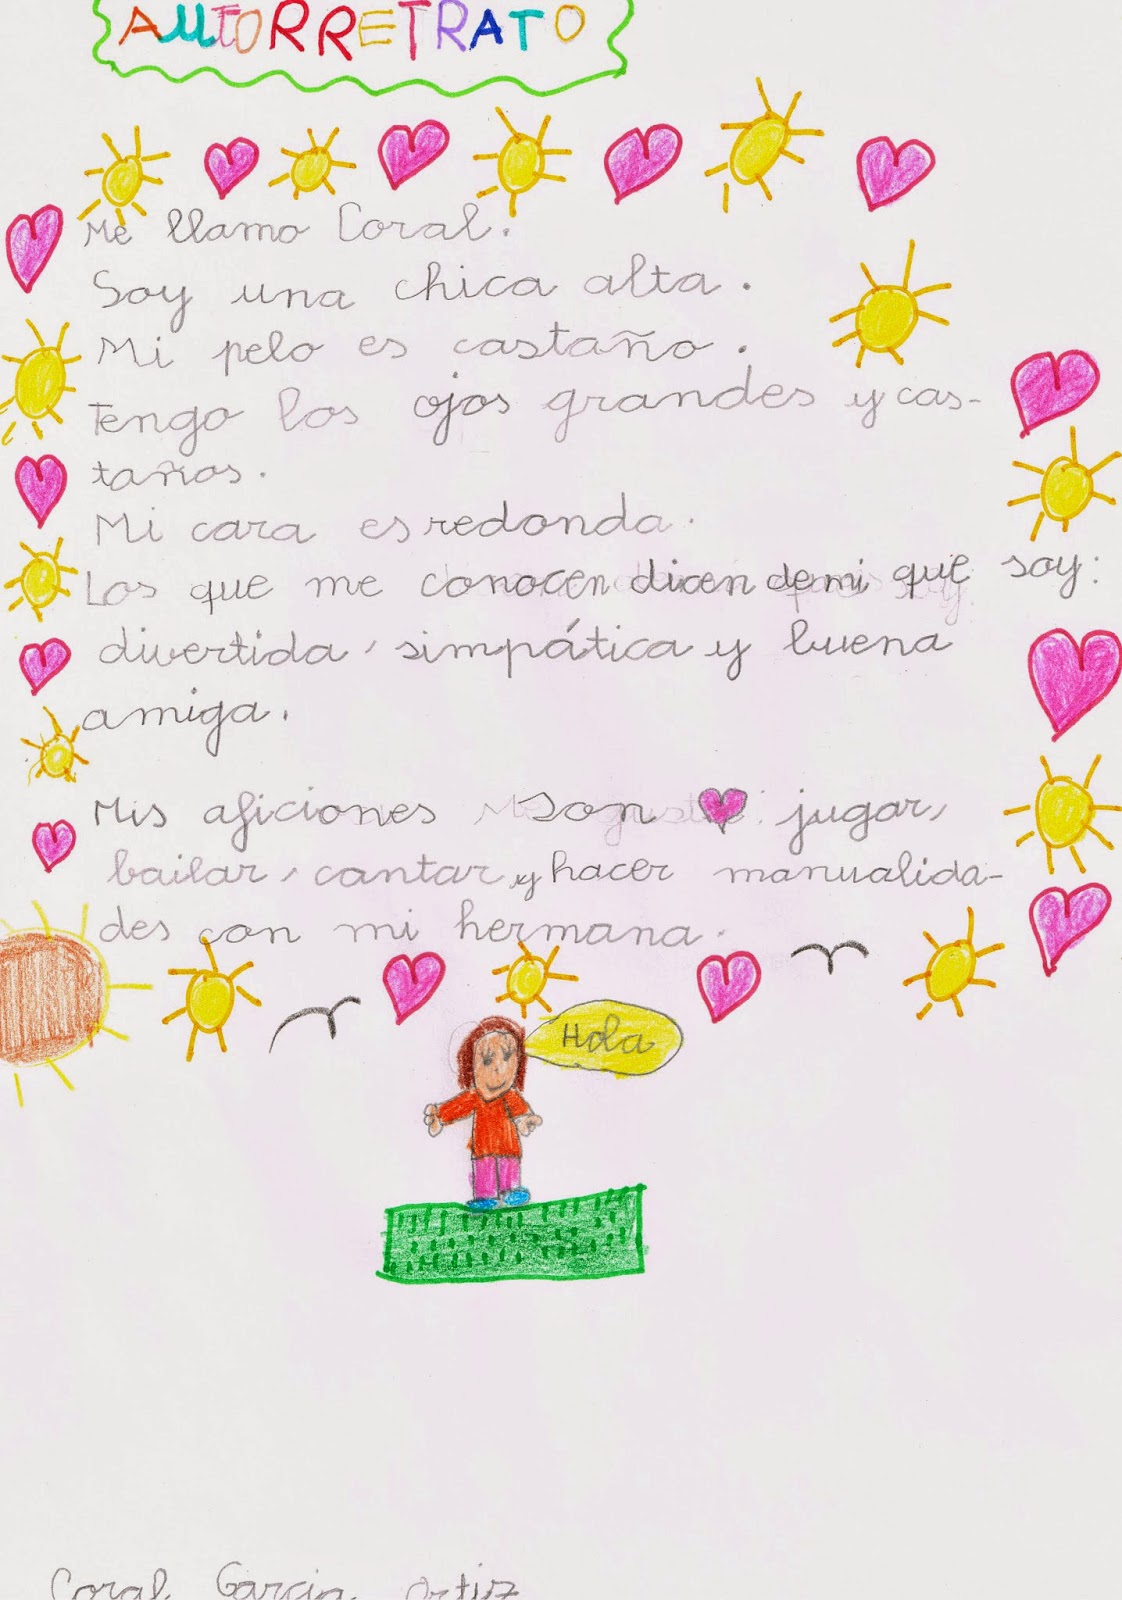 AUTORRETRATO
Me llamo Coral.
Soy una chica alta.
Mi pelo es castaño.
Tengo los ojos grandes y cas-
taños.
Mi cara es redonda.
Los que me conocen dicen de mi que soy:
divertida, simpática y buena
amiga.
Mis aficiones son jugar,
bailar, cantar y hacer manualida-
des con mi hermana.
Hola
Coral García Ortiz